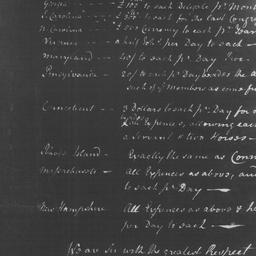 Georgia --- £100 to each Delegate pr. Month
S. Carolina -- £300 to each for the last Congress
N. Carolina -- £500 Currency to each pr. Year
Virginia -- a half Joh: per Day to each --
Maryland --- 40/ to each pr. Day Proc.
Pensylvania -- 20/ to each pr. Day besides the
such of ye Members as come
Conecticut --- 3 Dollars to each pr. Day for
Expences, allowing each
a Servant & two Horses --
Rhode Island -- Exactly the same as Conn
Massachusets -- all Expences as above, and
to each pr. Day --
New Hampshire All Expences as above & ha
per Day to each --
We are Sir with the greatest Respect